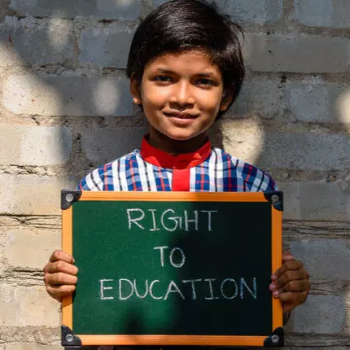 RIGHT
TO
EDUCATION